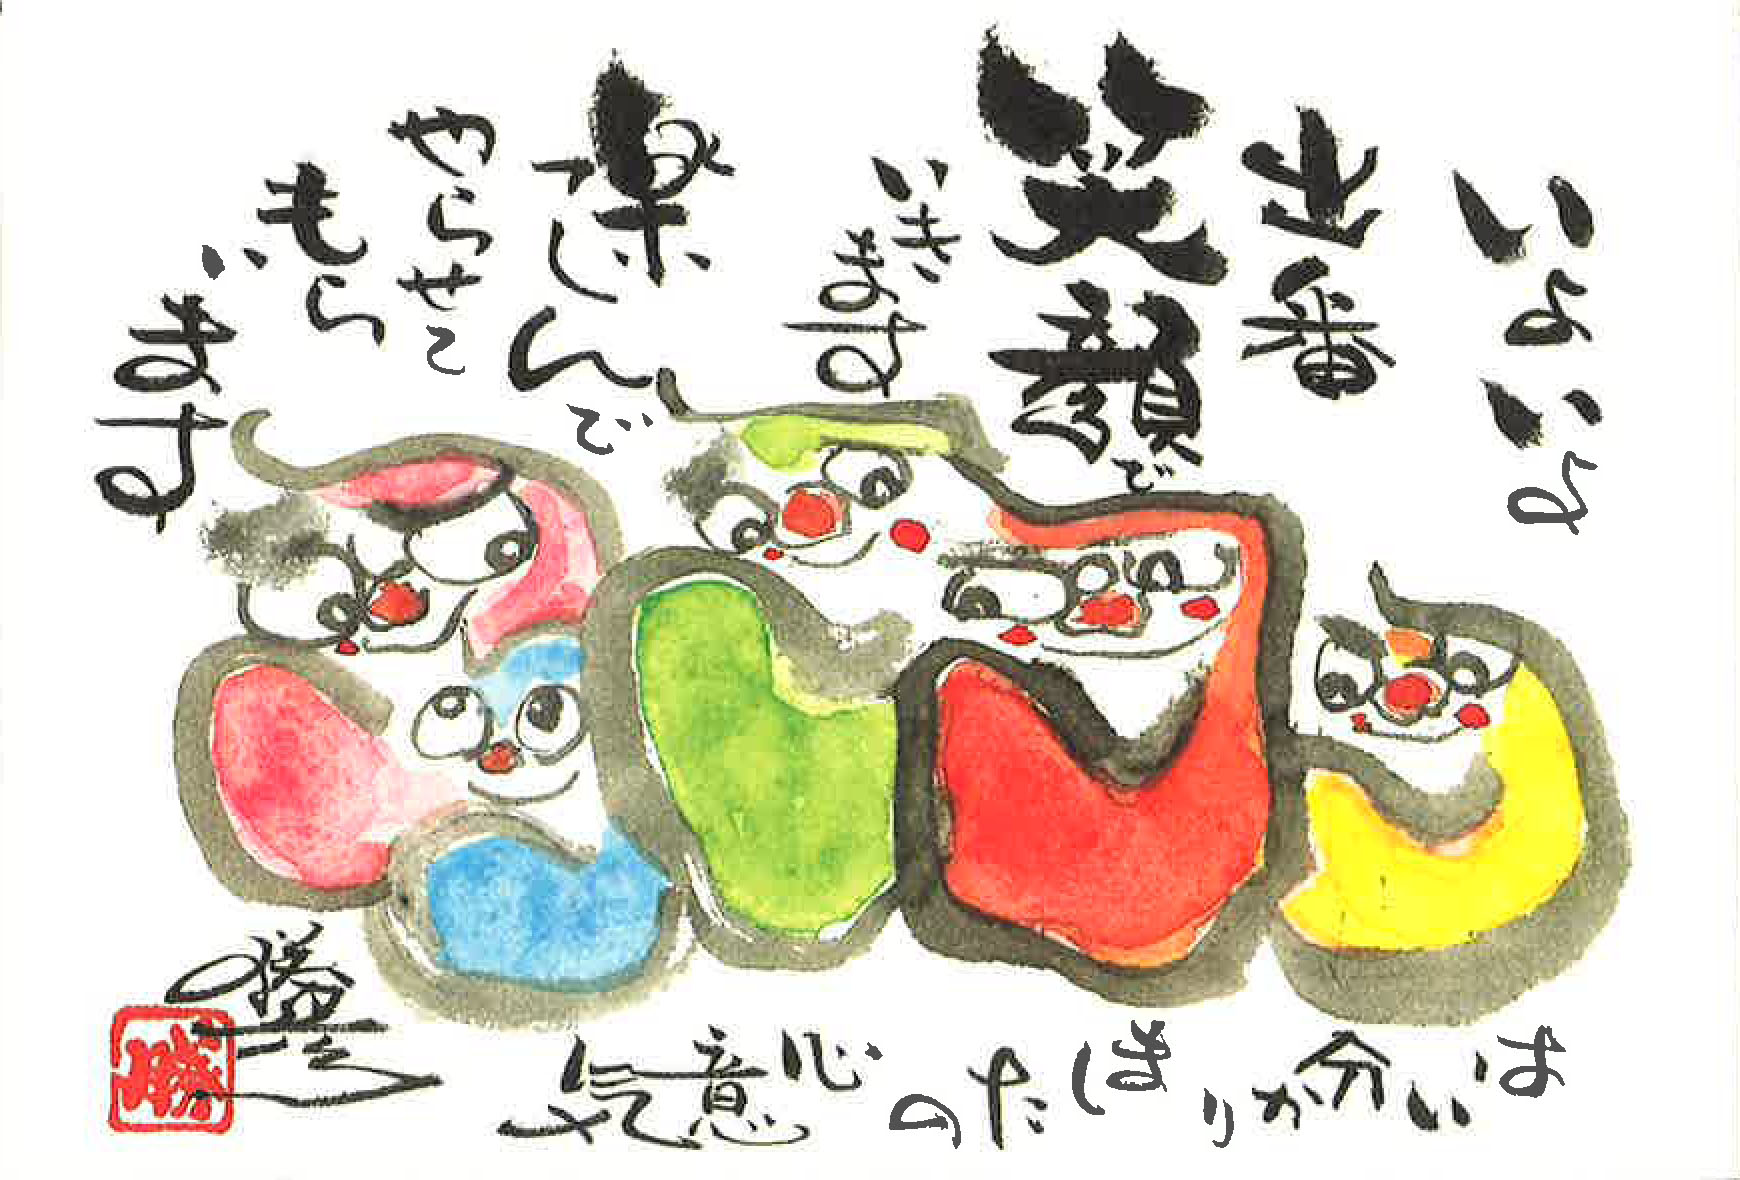 いよいよ
出番
笑顔で
いきます
楽しんで
やらせて
もら
います
はい分かりましたの心意気
勝